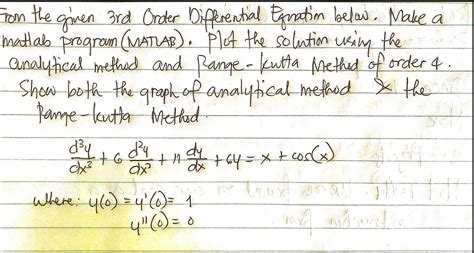 From the given 3rd Order Differential Equation below. Make a
matlab program (MATLAB). Plot the solution using the
analytical method and Range-kutta Method of order 4.
Show both the graph of analytical method & the
Range-kutta Method.
d³y/dx³ + 6 d²y/dx² + 11 dy/dx + 6y = x + cos(x)
where: y(0) = y'(0) = 1
y''(0) = 0